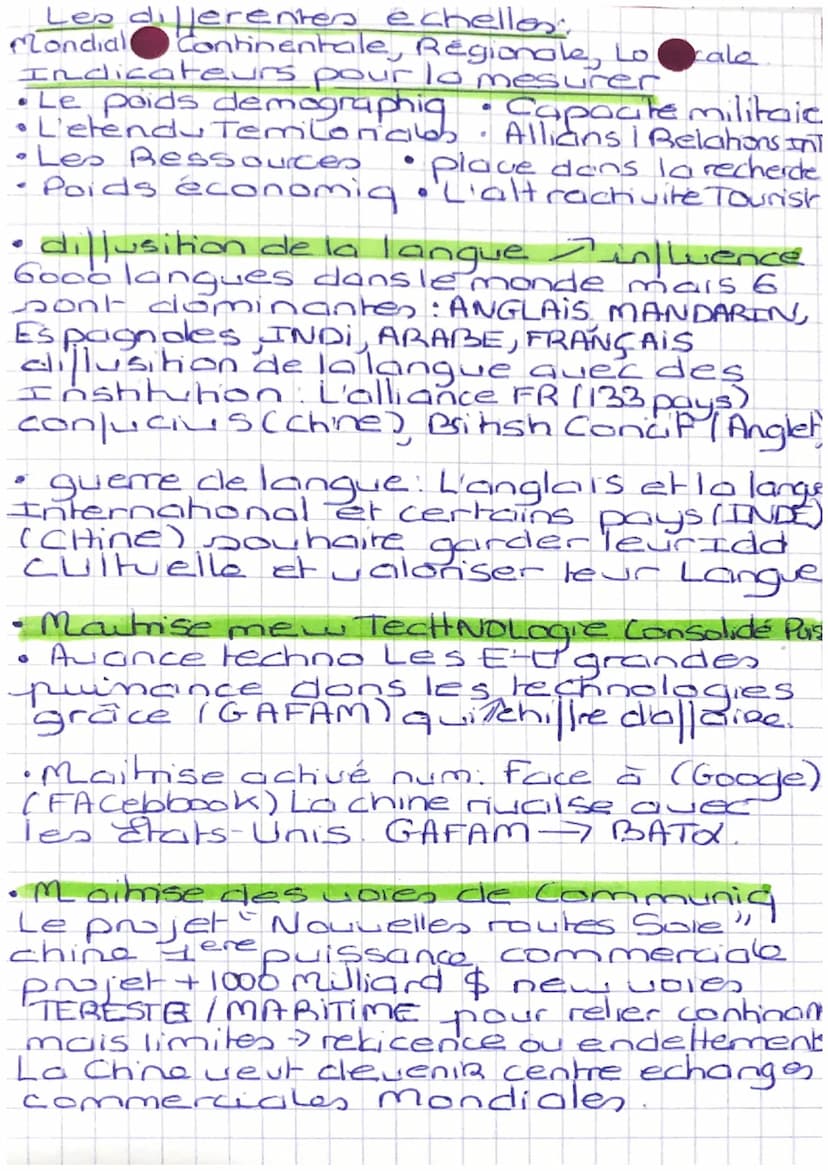 Les differentes échelles:
Mondial Continentale, Régionale, Locale.
Indicateurs pour la mesurer
• Le poids demographiq • Capacité militaie
• L'etendu Territoriales • Allians / Relations INT
• Les Ressources • place dans la recherche
• Poids économiq • L'attractivité Tourist
• diffusition de la langue ↗ influence
6000 langues dans le monde mais 6
sont dominantes : ANGLAIS, MANDARIN,
Espagnoles, INDI, ARABE, FRANÇAIS
diffusition de la langue avec des
Institution : L'alliance FR (133 pays)
confucius (chine), British Concif (Anglet
• guerre de langue : L'anglais et la lange
International et certains pays (INDE)
(CHine) souhaite garder leur Idd
culturelle et valoriser leur Langue
• Maitrise new TecHNOLogie Consolidé Puis
• Avance techno Les E-U grandes
puinance dans les technologies
grâce (GAFAM) qui ↗ chiffre d'affaire.
• Maitrise activé num. Face à (Google)
(FAcebbook) La chine rivalse avec
les États-Unis. GAFAM → BATX.
• Maitrise des voies de Communiq
Le projet "Nouvelles routes Soie"
chine 1ere puissance commerciale
projet + 1000 Milliard $ new voies
TERESTR / MARITIME pour relier continan
mais limites → reticence ou endettement
La Chine veut devenir centre echanges
commerciales Mondiales.